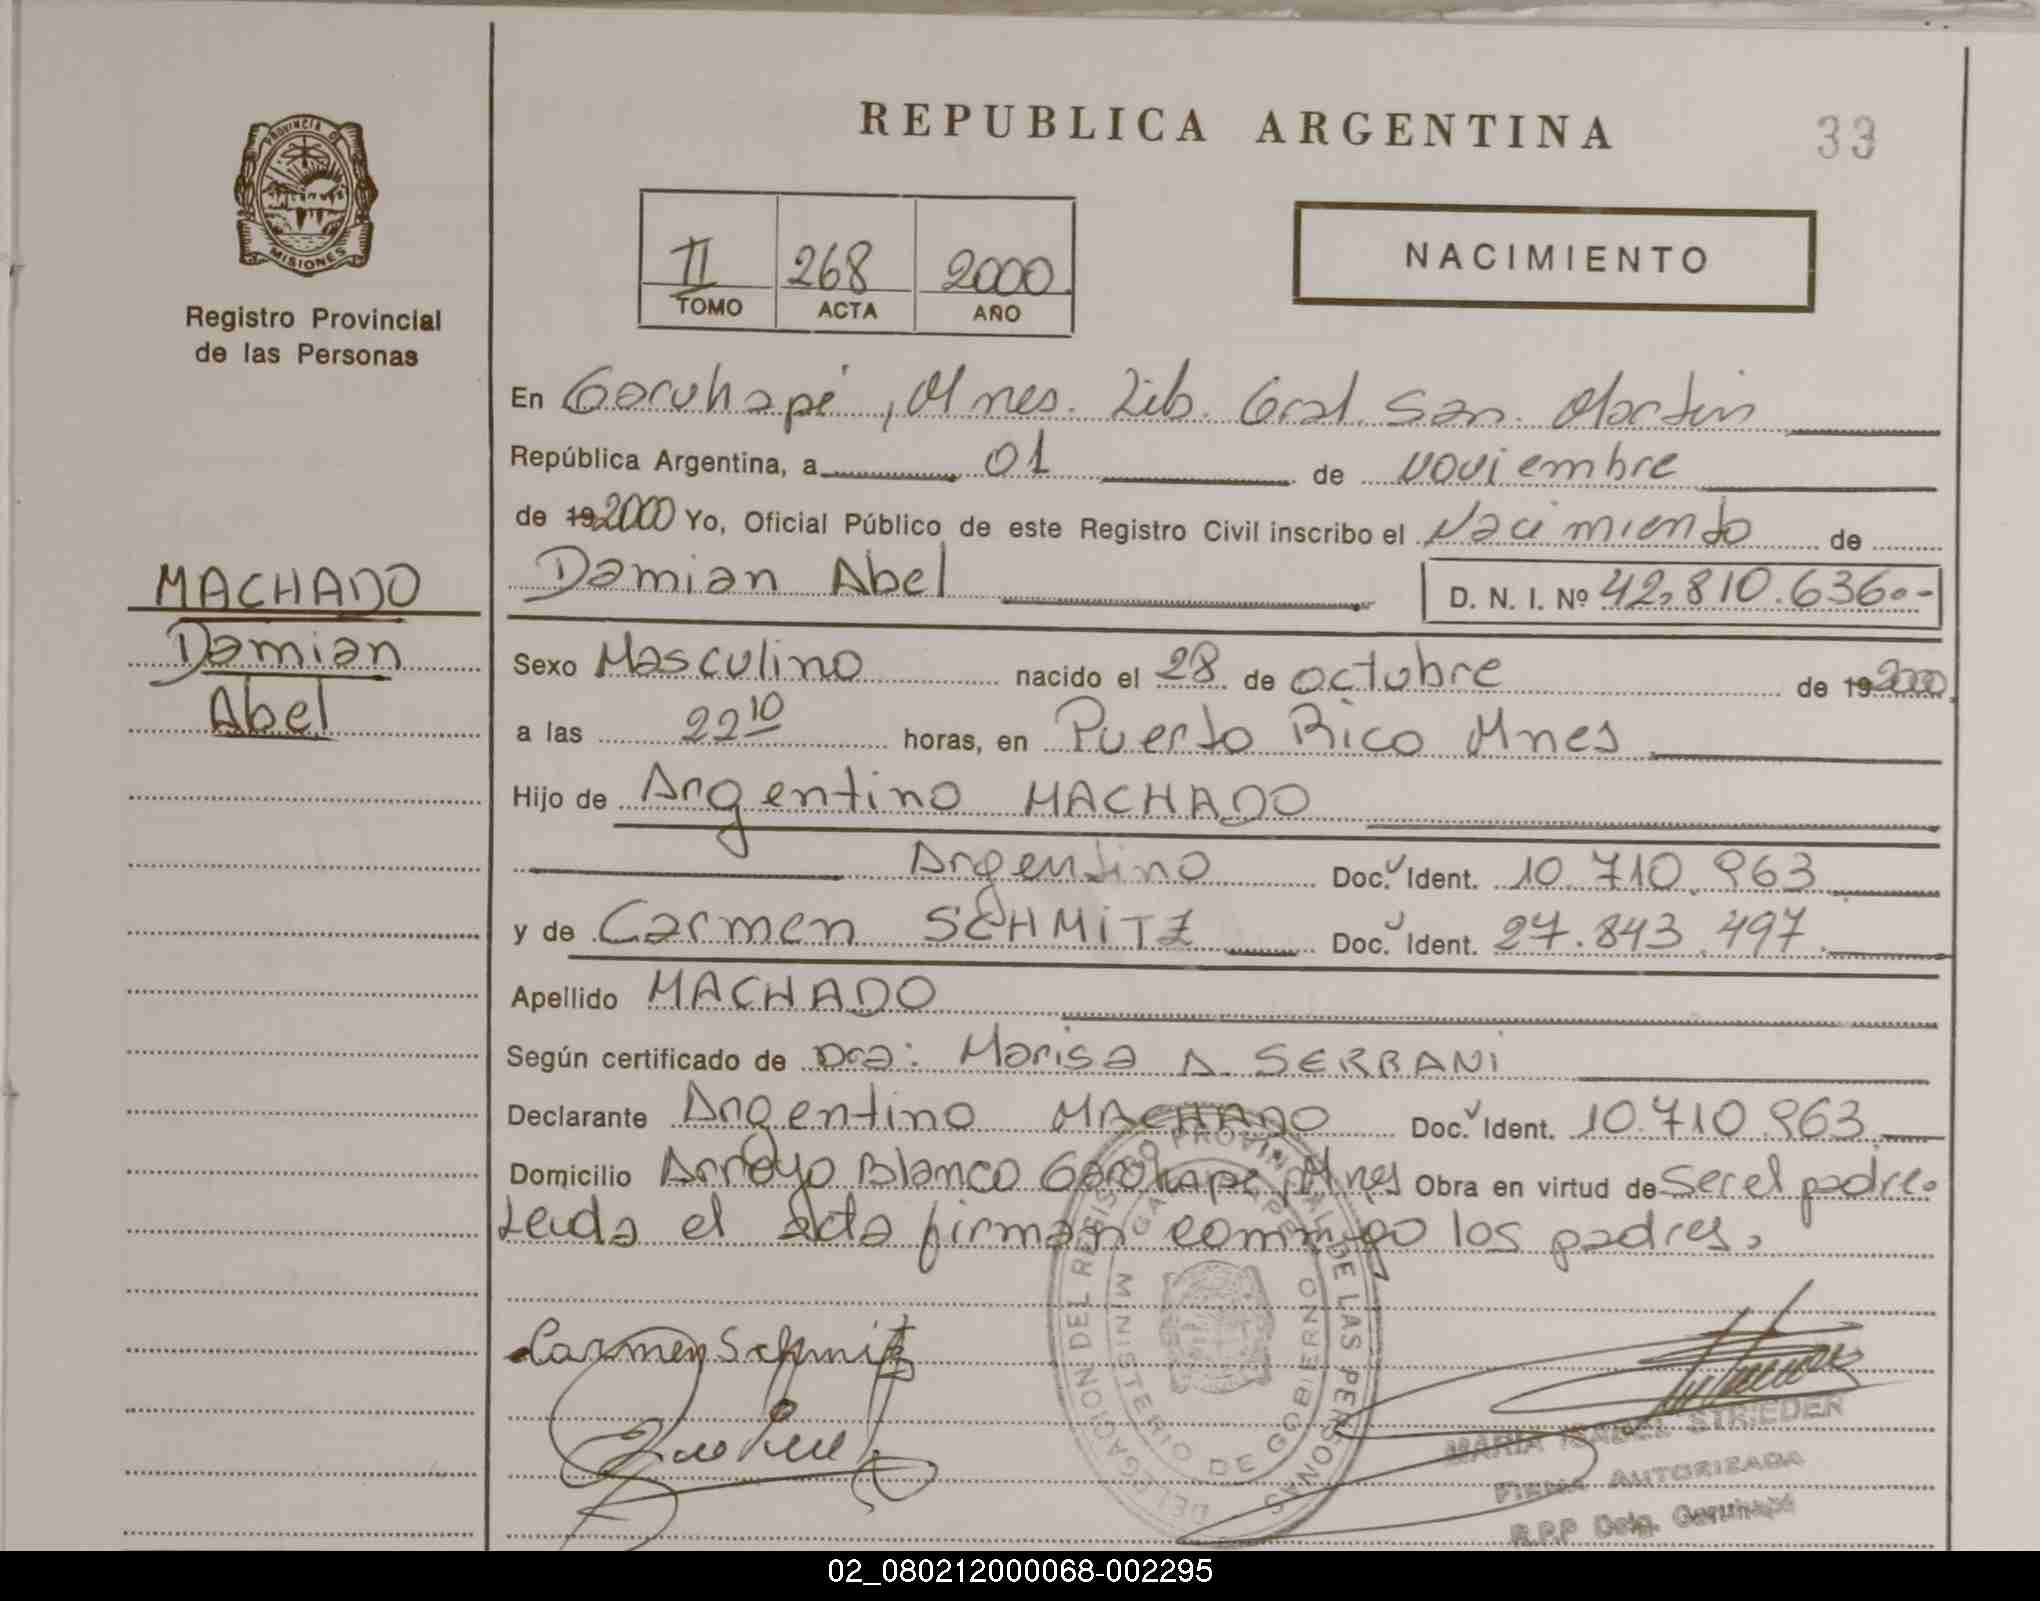 REPUBLICA ARGENTINA
33
PROVINCIA DE
MISIONES
Registro Provincial
de las Personas
II 268 2000
TOMO ACTA AÑO
NACIMIENTO
En Garuhapé, Mnes. Lib. Gral. San. Martin
República Argentina, a 01 de noviembre
de 19 2000 Yo, Oficial Público de este Registro Civil inscribo el Nacimiento de
Damian Abel D. N. I. Nº 42.810.636.-
MACHADO
Damian
Abel
Sexo Masculino nacido el 28 de octubre de 19 2000
a las 22 10 horas, en Puerto Rico Mnes
Hijo de Argentino MACHADO
Argentino Doc. Ident. 10.710.963
y de Carmen SCHMITZ Doc. Ident. 27.843.497.
Apellido MACHADO
Según certificado de Dra: Marisa A. SERBANI
Declarante Argentino MACHADO Doc. Ident. 10.710.963
Domicilio Arroyo Blanco Garuhape, Mnes Obra en virtud de Ser el padre.
Leida el acta firman conmigo los padres.
Carmen Schmitz
DELEGACION DEL REGISTRO PROVINCIAL DE LAS PERSONAS
GARUHAPE
MINISTERIO DE GOBIERNO
MARIA ISABEL STRIEDER
FIRMA AUTORIZADA
R.P.P Deleg. Garuhapé
02_080212000068-002295